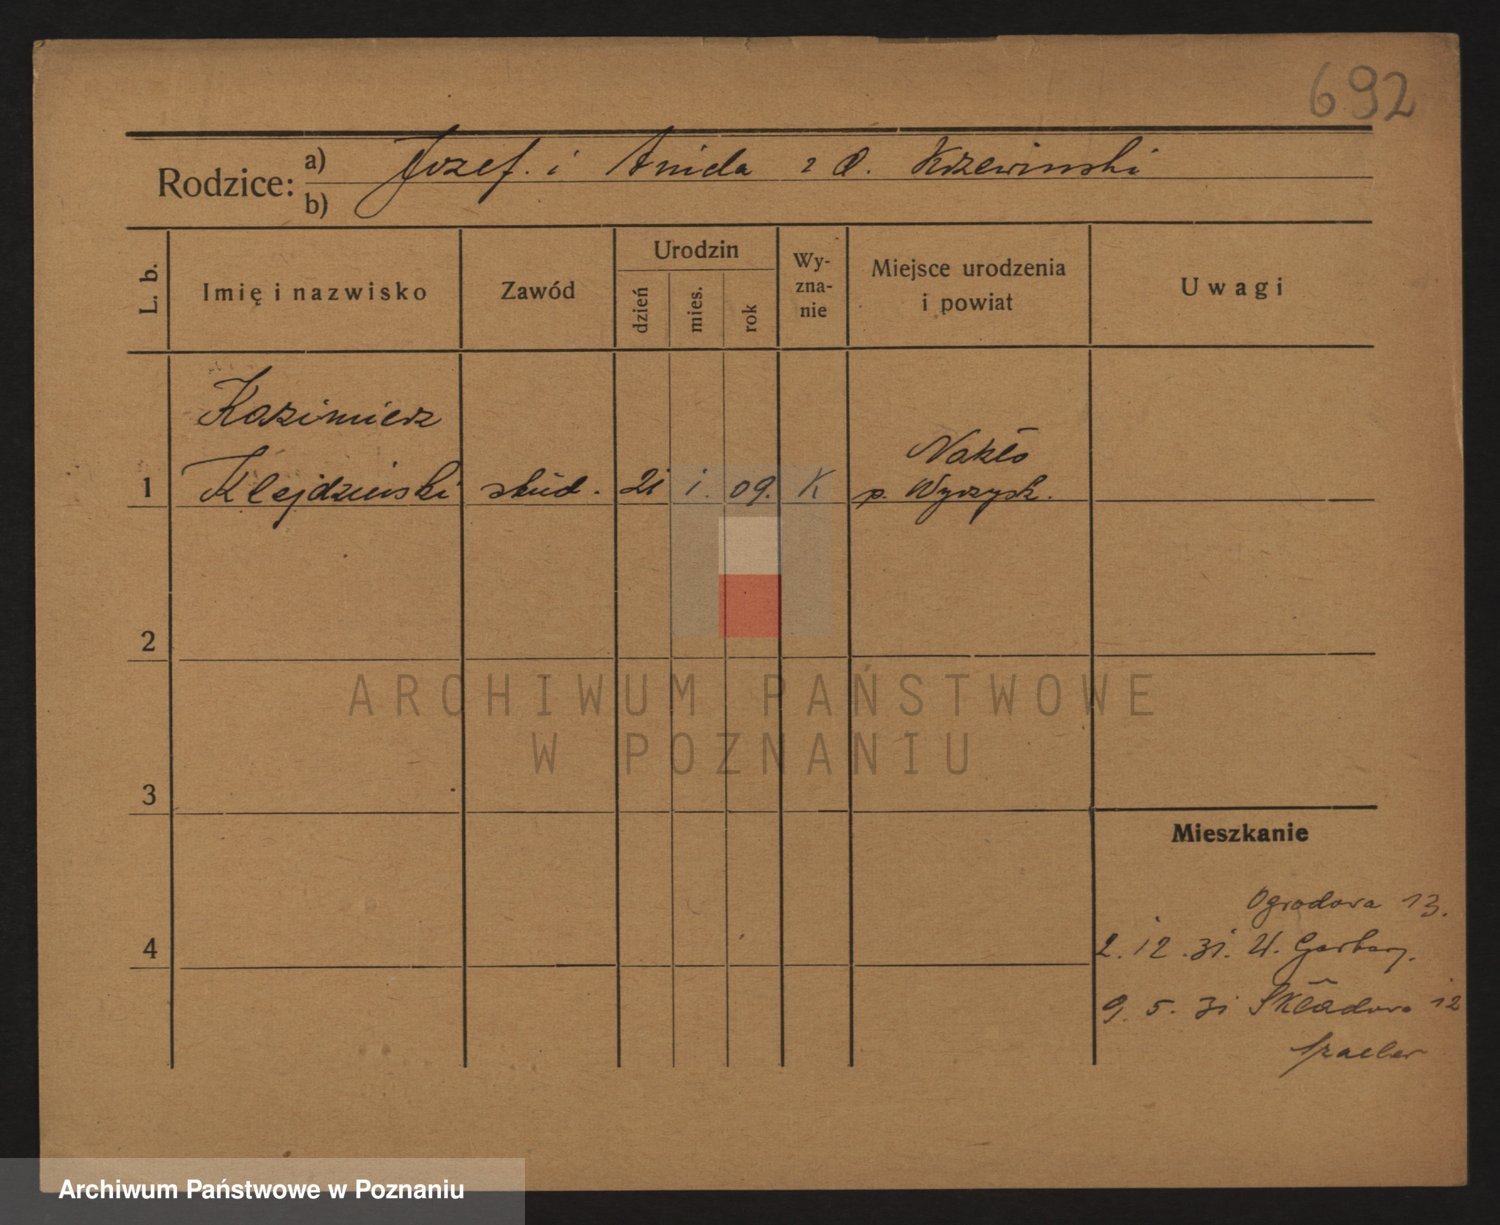 692
Rodzice:
a) Jozef. i Anida z d. Krzewinski
b)
L. b.
Imię i nazwisko
Zawód
Urodzin
dzień
mies.
rok
Wy-
zna-
nie
Miejsce urodzenia
i powiat
Uwagi
Kazimierz
Nakło
1 Klejdzinski stud. 21 1. 09. K p. Wyrzysk.
2
ARCHIWUM PAŃSTWOWE
W POZNANIU
3
Mieszkanie
Ogrodowa 13.
4
2. 12. 31. W. Garbary.
9. 5. 31 Składowa 12
Archiwum Państwowe w Poznaniu